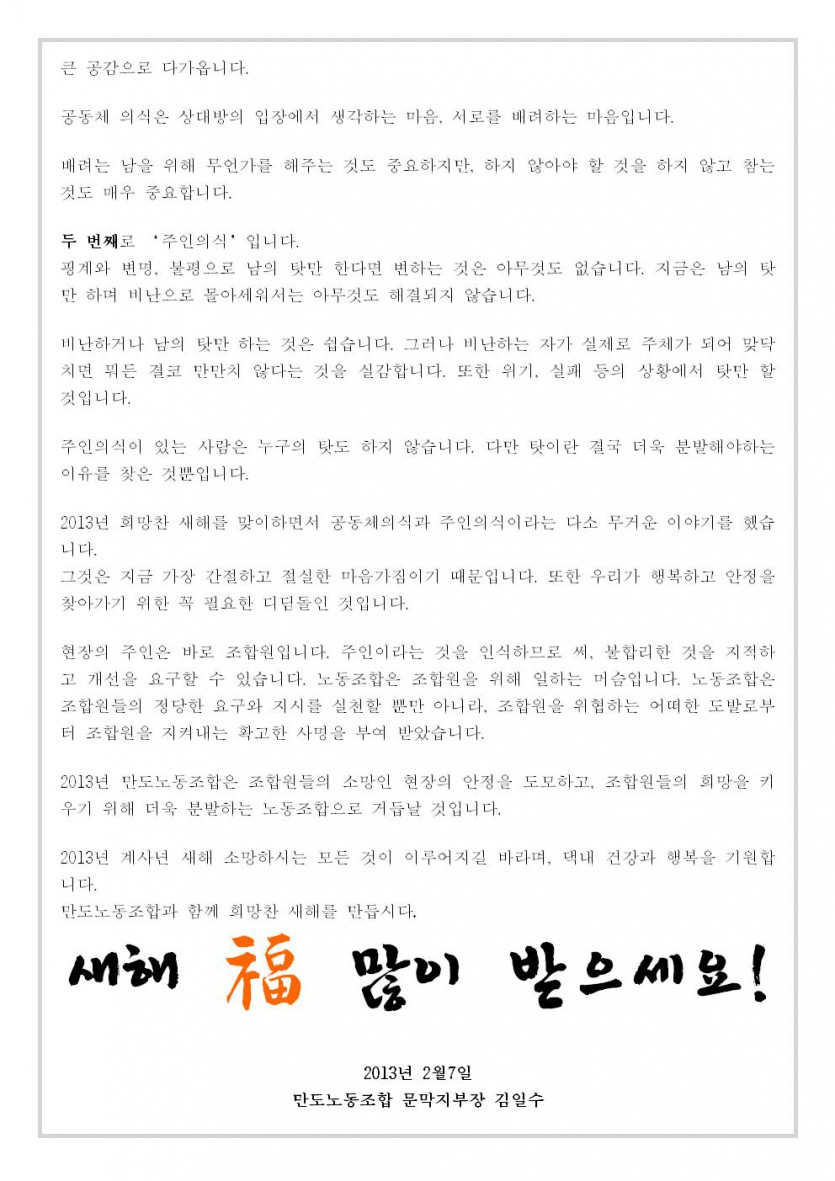 큰 공감으로 다가옵니다.
공동체 의식은 상대방의 입장에서 생각하는 마음, 서로를 배려하는 마음입니다.
배려는 남을 위해 무언가를 해주는 것도 중요하지만, 하지 않아야 할 것을 하지 않고 참는
것도 매우 중요합니다.
두 번째로 ‘주인의식’입니다.
핑계와 변명, 불평으로 남의 탓만 한다면 변하는 것은 아무것도 없습니다. 지금은 남의 탓
만 하며 비난으로 몰아세워서는 아무것도 해결되지 않습니다.
비난하거나 남의 탓만 하는 것은 쉽습니다. 그러나 비난하는 자가 실제로 주체가 되어 맞닥
치면 뭐든 결코 만만치 않다는 것을 실감합니다. 또한 위기, 실패 등의 상황에서 탓만 할
것입니다.
주인의식이 있는 사람은 누구의 탓도 하지 않습니다. 다만 탓이란 결국 더욱 분발해야하는
이유를 찾은 것뿐입니다.
2013년 희망찬 새해를 맞이하면서 공동체의식과 주인의식이라는 다소 무거운 이야기를 했습
니다.
그것은 지금 가장 간절하고 절실한 마음가짐이기 때문입니다. 또한 우리가 행복하고 안정을
찾아가기 위한 꼭 필요한 디딤돌인 것입니다.
현장의 주인은 바로 조합원입니다. 주인이라는 것을 인식하므로 써, 불합리한 것을 지적하
고 개선을 요구할 수 있습니다. 노동조합은 조합원을 위해 일하는 머슴입니다. 노동조합은
조합원들의 정당한 요구와 지시를 실천할 뿐만 아니라, 조합원을 위협하는 어떠한 도발로부
터 조합원을 지켜내는 확고한 사명을 부여 받았습니다.
2013년 만도노동조합은 조합원들의 소망인 현장의 안정을 도모하고, 조합원들의 희망을 키
우기 위해 더욱 분발하는 노동조합으로 거듭날 것입니다.
2013년 계사년 새해 소망하시는 모든 것이 이루어지길 바라며, 댁내 건강과 행복을 기원합
니다.
만도노동조합과 함께 희망찬 새해를 만듭시다.
새해 福 많이 받으세요!
2013년 2월7일
만도노동조합 문막지부장 김일수